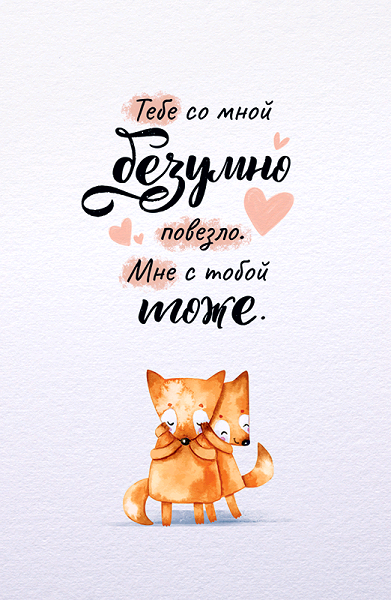 Тебе со мной
безумно
повезло.
Мне с тобой
тоже.